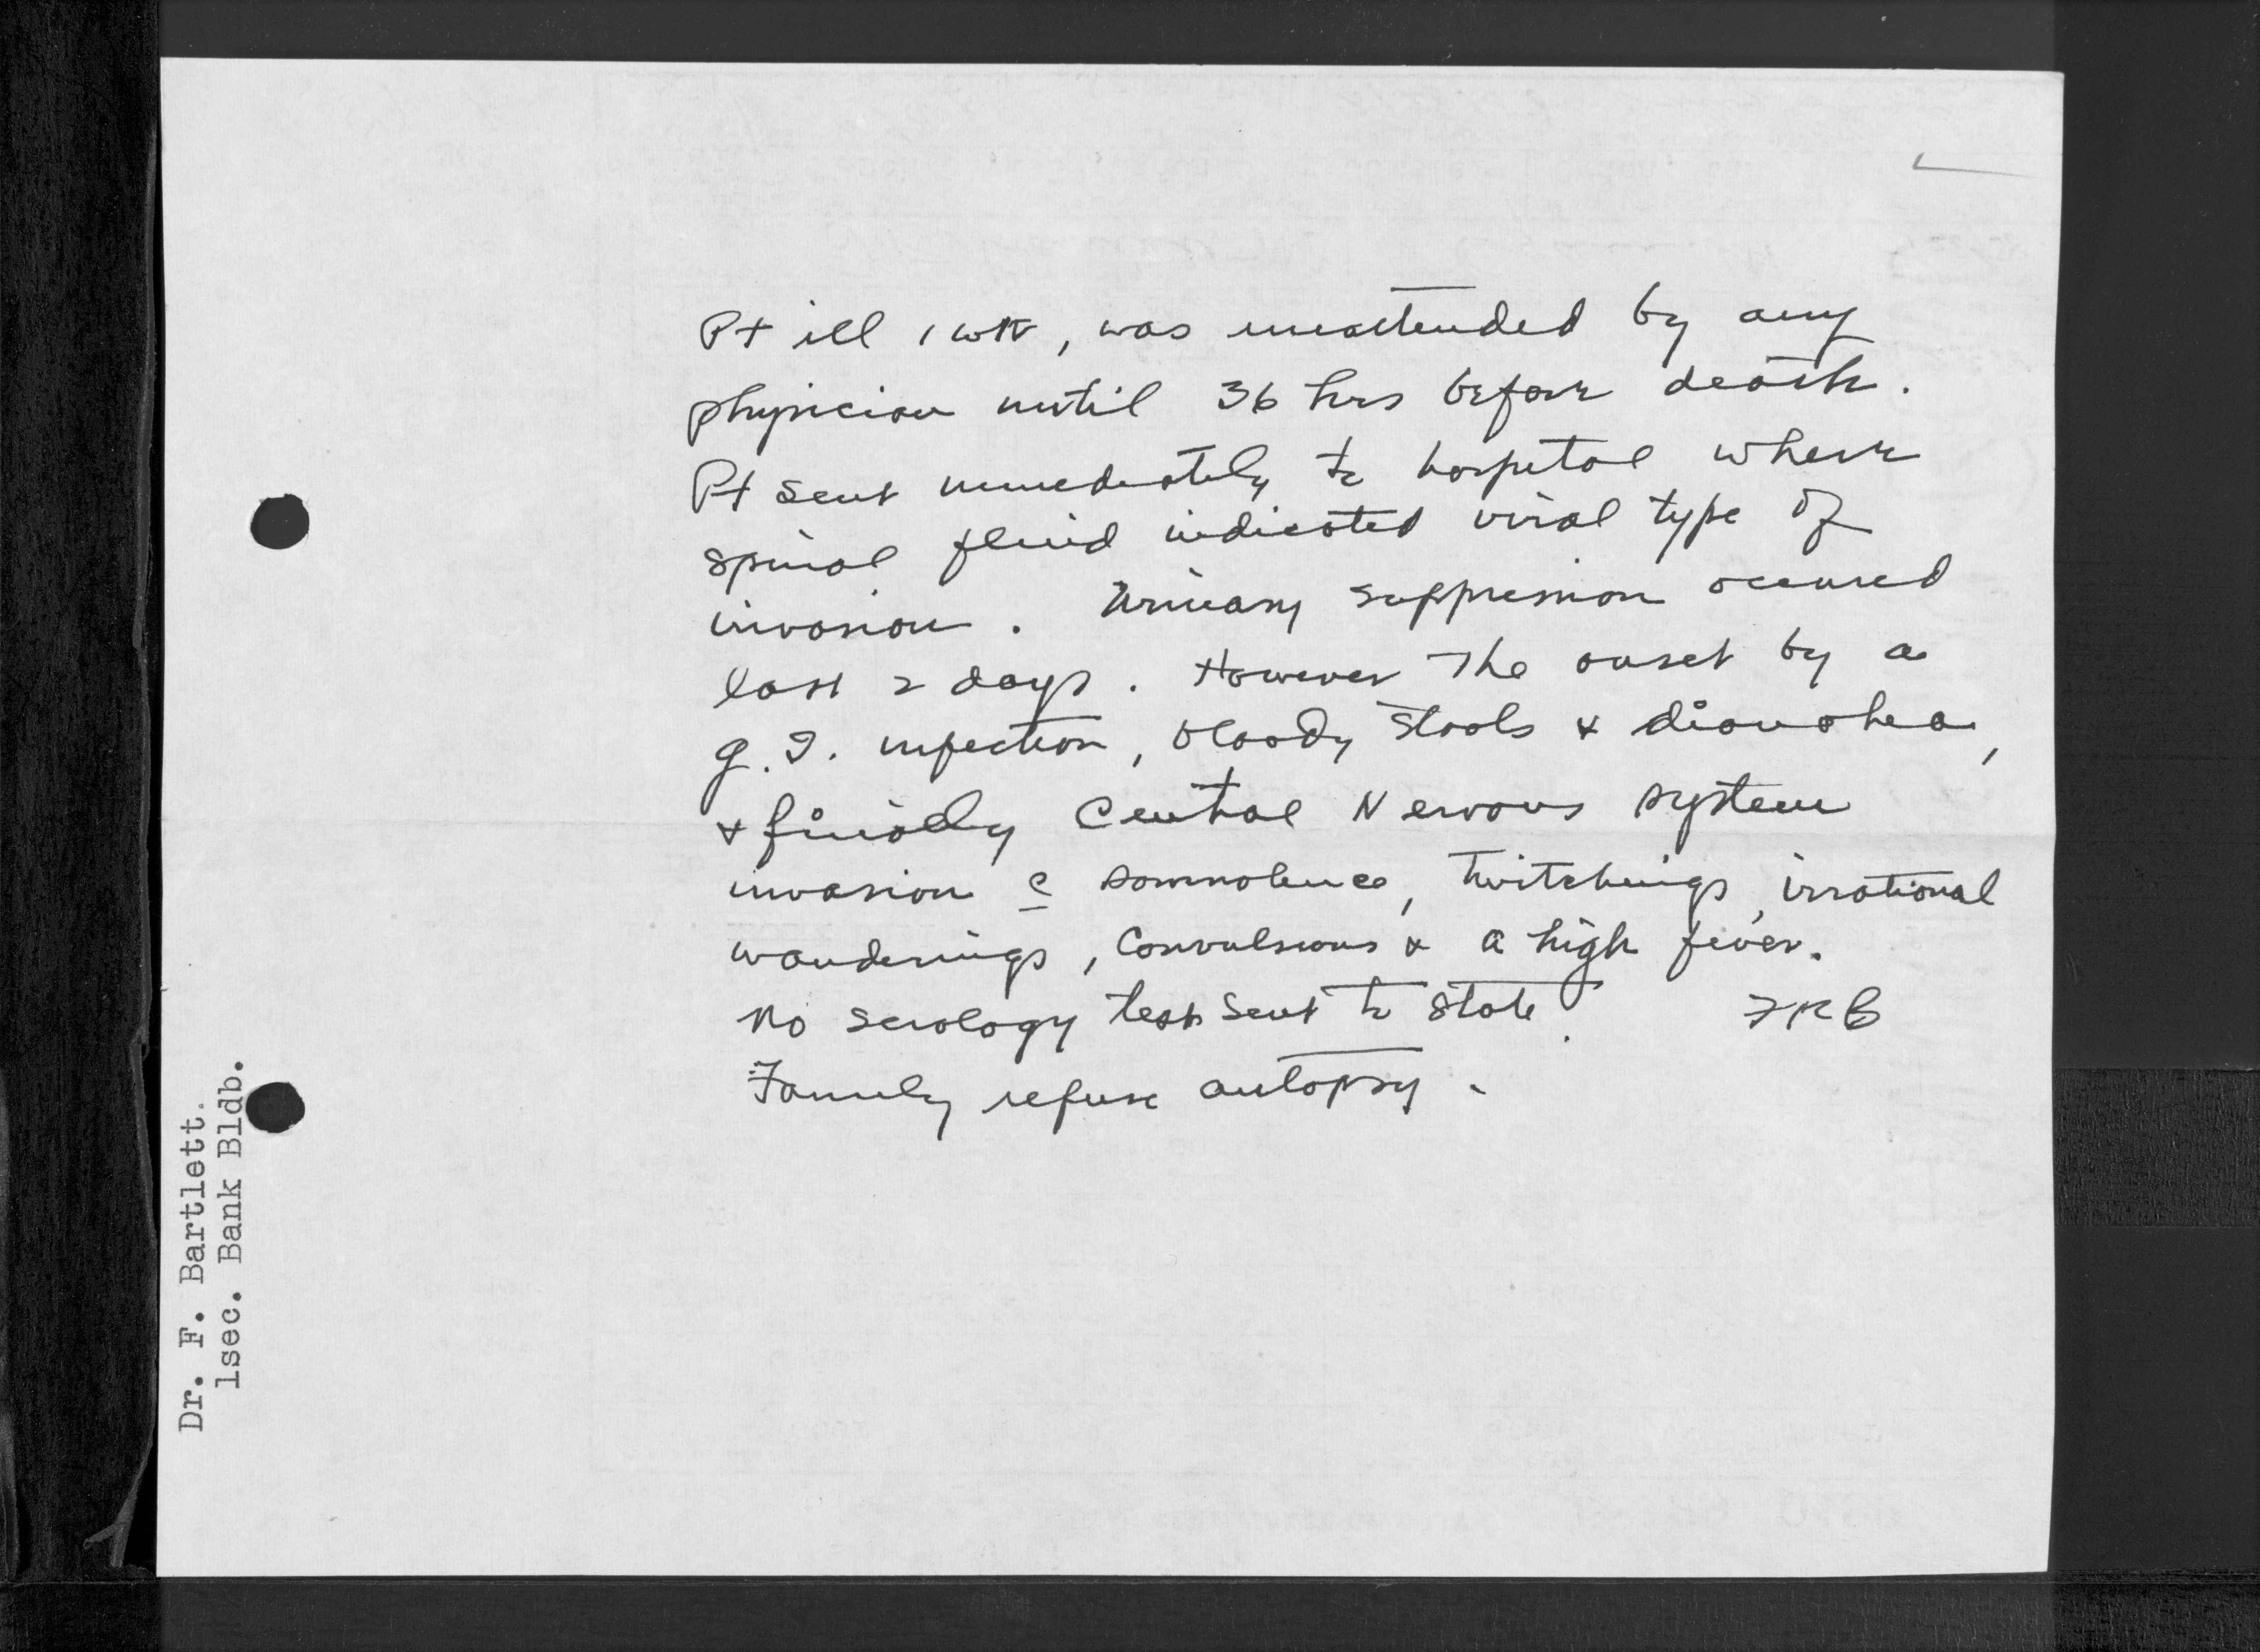 Pt ill 1 wk, was unattended by any
physician until 36 hrs before death.
Pt sent immediately to hospital where
spinal fluid indicated viral type of
invasion. Urinary suppression occured
last 2 days. However the onset by a
g.I. infection, bloody stools & diarrohea,
& finally Central Nervous system
invasion c̄ somnolence, twitchings, irrational
wanderings, convulsions & a high fever.
No serology test sent to state. FRB
Family refuse autopsy.
Dr. F. Bartlett.
1sec. Bank Bldb.